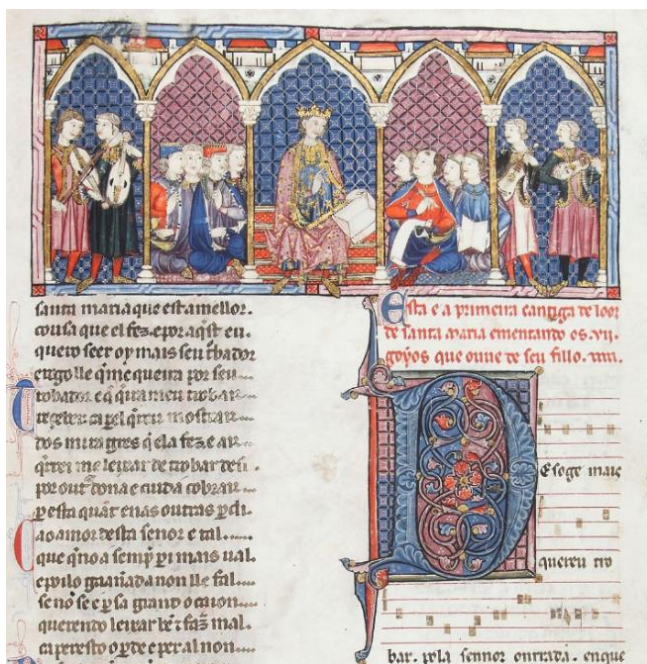 santa maria que est a mellor.
cousa que el fez. e por aqst eu.
quero seer oy mais seu t̃bador
e rogo lle q̃ me queira por seu
trobador e q̃ q̃ira meu trobar
reçeber. ca per el q̃r eu mostrar
dos miragres q̃ ela fez. e ar
q̃rrei me leixar de trobar desi.
por out̃ dona e cuid a cobrar
p esta quãt enas outras pdi.
Ca o amor desta sennor e tal....
que q̃no a semp̃ p i mais ual.
e poilo gaannad a non lle fal.....
se nõ se e p sa grand ocaion.
querendo leixar bẽ ⁊ faz̃ mal.
ca per esto o pde e per al non....
Esta e a primeira cantiga de loor
de santa maria ementando os. vii.
goyos que ouue de seu fillo.
Des oge mais
quer eu tro
bar. pola sennor onrrada. en que